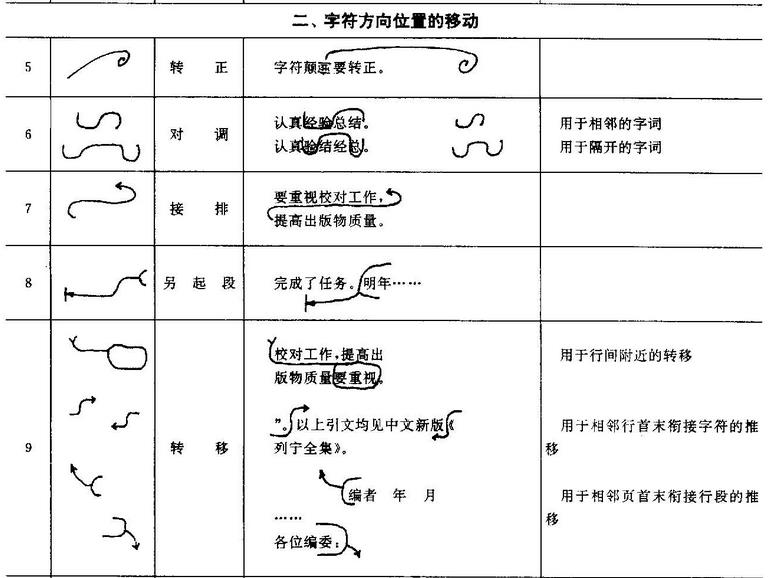 二、字符方向位置的移动
5 转 正 字符颠置要转正。
6 对 调 认真经验总结。 用于相邻的字词
认真验结经总。 用于隔开的字词
7 接 排 要重视校对工作，
提高出版物质量。
8 另 起 段 完成了任务。明年……
9 转 移 校对工作，提高出 用于行间附近的转移
版物质量要重视。
”。以上引文均见中文新版《 用于相邻行首末衔接字符的推
列宁全集》。 移
编者 年 月 用于相邻页首末衔接行段的推
移
……
各位编委：